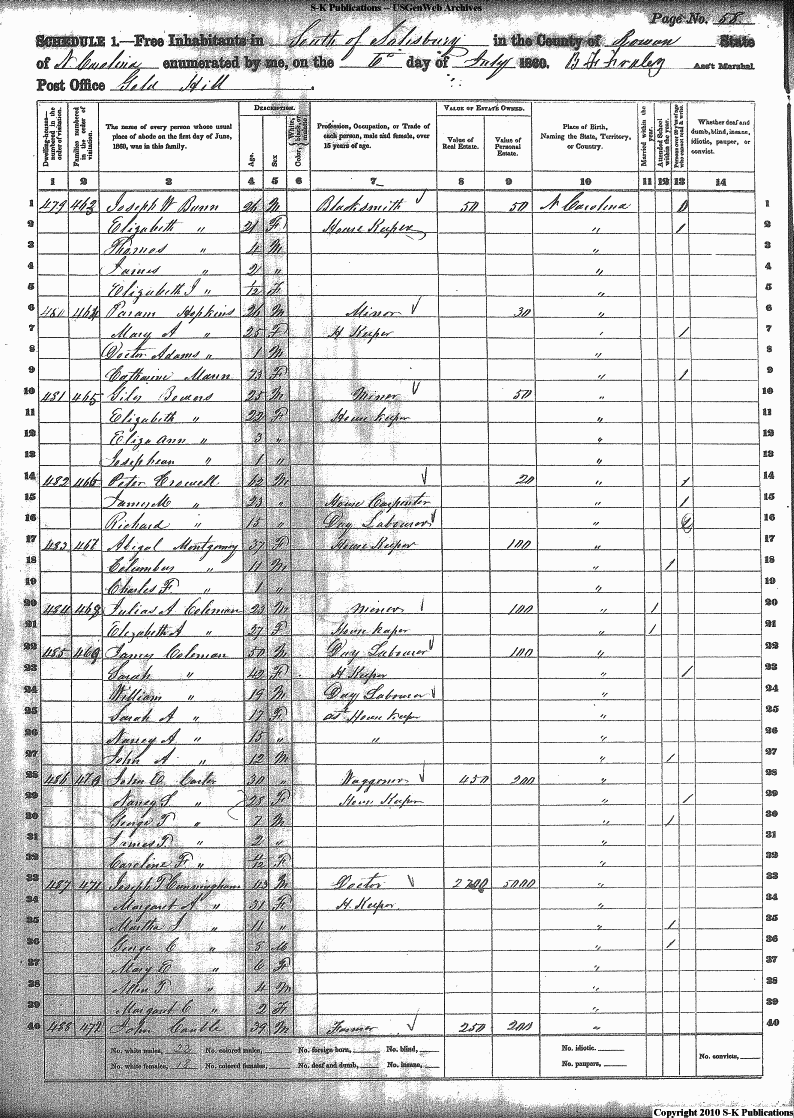 S-K Publications -- USGenWeb Archives
Page No. 58
SCHEDULE 1.—Free Inhabitants in South of Salisbury in the County of Rowan State
of N Carolina enumerated by me, on the 6th day of July 1860. Ass't Marshal.
Post Office Gold Hill
Dwelling-houses—numbered in the order of visitation.
Families numbered in the order of visitation.
The name of every person whose usual place of abode on the first day of June, 1860, was in this family.
DESCRIPTION.
Age.
Sex
Color,
Profession, Occupation, or Trade of each person, male and female, over 15 years of age.
VALUE OF ESTATE OWNED.
Value of Real Estate.
Value of Personal Estate.
Place of Birth, Naming the State, Territory, or Country.
Married within the year.
Attended School within the year.
Whether deaf and dumb, blind, insane, idiotic, pauper, or convict.
1 2 3 4 5 6 7 8 9 10 11 12 13 14
1 479 463 Joseph W Bunn 26 M Blacksmith 50 50 N Carolina 1
2 Elizabeth " 21 F House Keeper " / 2
3 Thomas " 4 M " 3
4 James " 2 " " 4
5 Elizabeth J " 1/12 F " 5
6 480 464 Param Hopkins 26 M Minor 30 " 6
7 Mary A " 25 F H Keeper " / 7
8 Doctor Adams " 1 M " 8
9 Catharine Mann 73 F " / 9
10 481 465 Giles Bowers 25 M Minor 50 " 10
11 Elizabeth " 22 F House Keeper " 11
12 Eliza Ann " 3 " " 12
13 Josephean " 1 " " 13
14 482 466 Peter Crowell 62 M 20 " / 14
15 James M " 23 " House Carpenter " / 15
16 Richard " 15 " Day Labourer " 16
17 483 467 Abigal Montgomery 37 F House Keeper 100 " 17
18 Columbus " 11 M " / 18
19 Charles F " 1 " " 19
20 484 468 Julias A Coleman 23 M Miner 100 " / 20
21 Elizabeth A " 27 F House Keeper " / 21
22 485 469 James Coleman 50 M Day Labourer 100 " 22
23 Sarah " 42 F H Keeper " / 23
24 William " 19 M Day Labourer " 24
25 Sarah A " 17 F as House Keeper " 25
26 Nancy A " 15 " " " 26
27 John A " 12 M " / 27
28 486 470 John Carter 30 " Waggoner 450 200 " 28
29 Nancy S " 28 F House Keeper " / 29
30 George T " 7 M " / 30
31 James F " 2 " " 31
32 Caroline F " F " 32
33 487 471 Joseph F Cunningham 43 M Doctor 5000 " 33
34 Margaret A " 31 F H Keeper " 34
35 Martha J " 11 " " / 35
36 George C " 8 M " / 36
37 Mary E " 6 F " 37
38 F " 4 M " 38
39 Margaret C " 2 F " 39
40 488 472 John Cauble 39 M Farmer 250 200 " 40
No. white males, No. colored males, No. foreign born, No. blind, No. idiotic, No. convicts,
No. white females, No. colored females, No. deaf and dumb, No. insane, No. paupers,
Copyright 2010 S-K Publications